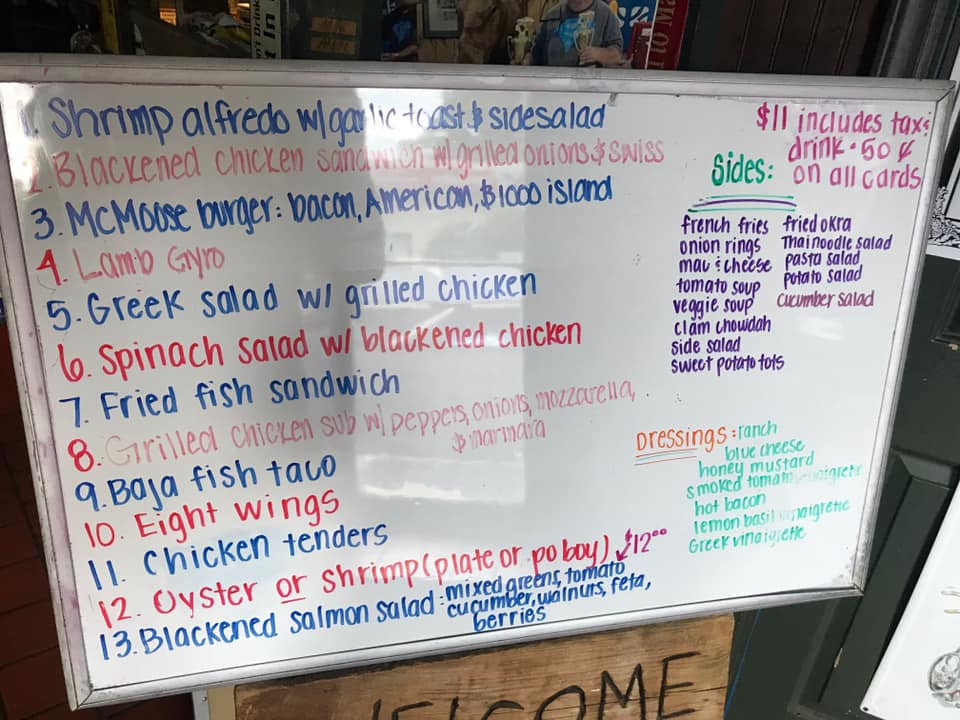 1. Shrimp alfredo w/ garlic toast & side salad
2. Blackened chicken sandwich w/ grilled onions & swiss
3. McMoose burger: bacon, American, & 1000 island
4. Lamb Gyro
5. Greek salad w/ grilled chicken
6. Spinach salad w/ blackened chicken
7. Fried fish sandwich
8. Grilled chicken sub w/ peppers, onions, mozzarella,
& marinara
9. Baja fish taco
10. Eight wings
11. Chicken tenders
12. Oyster or shrimp (plate or po boy) $12⁰⁰
13. Blackened salmon salad: mixed greens, tomato
cucumber, walnuts, feta,
berries
$11 includes tax &
drink • 50 ¢
on all cards
Sides:
french fries
onion rings
mac & cheese
tomato soup
veggie soup
clam chowdah
side salad
sweet potato tots
fried okra
Thai noodle salad
pasta salad
potato salad
cucumber salad
Dressings: ranch
blue cheese
honey mustard
smoked tomato vinaigrette
hot bacon
lemon basil vinaigrette
Greek vinaigrette
WELCOME